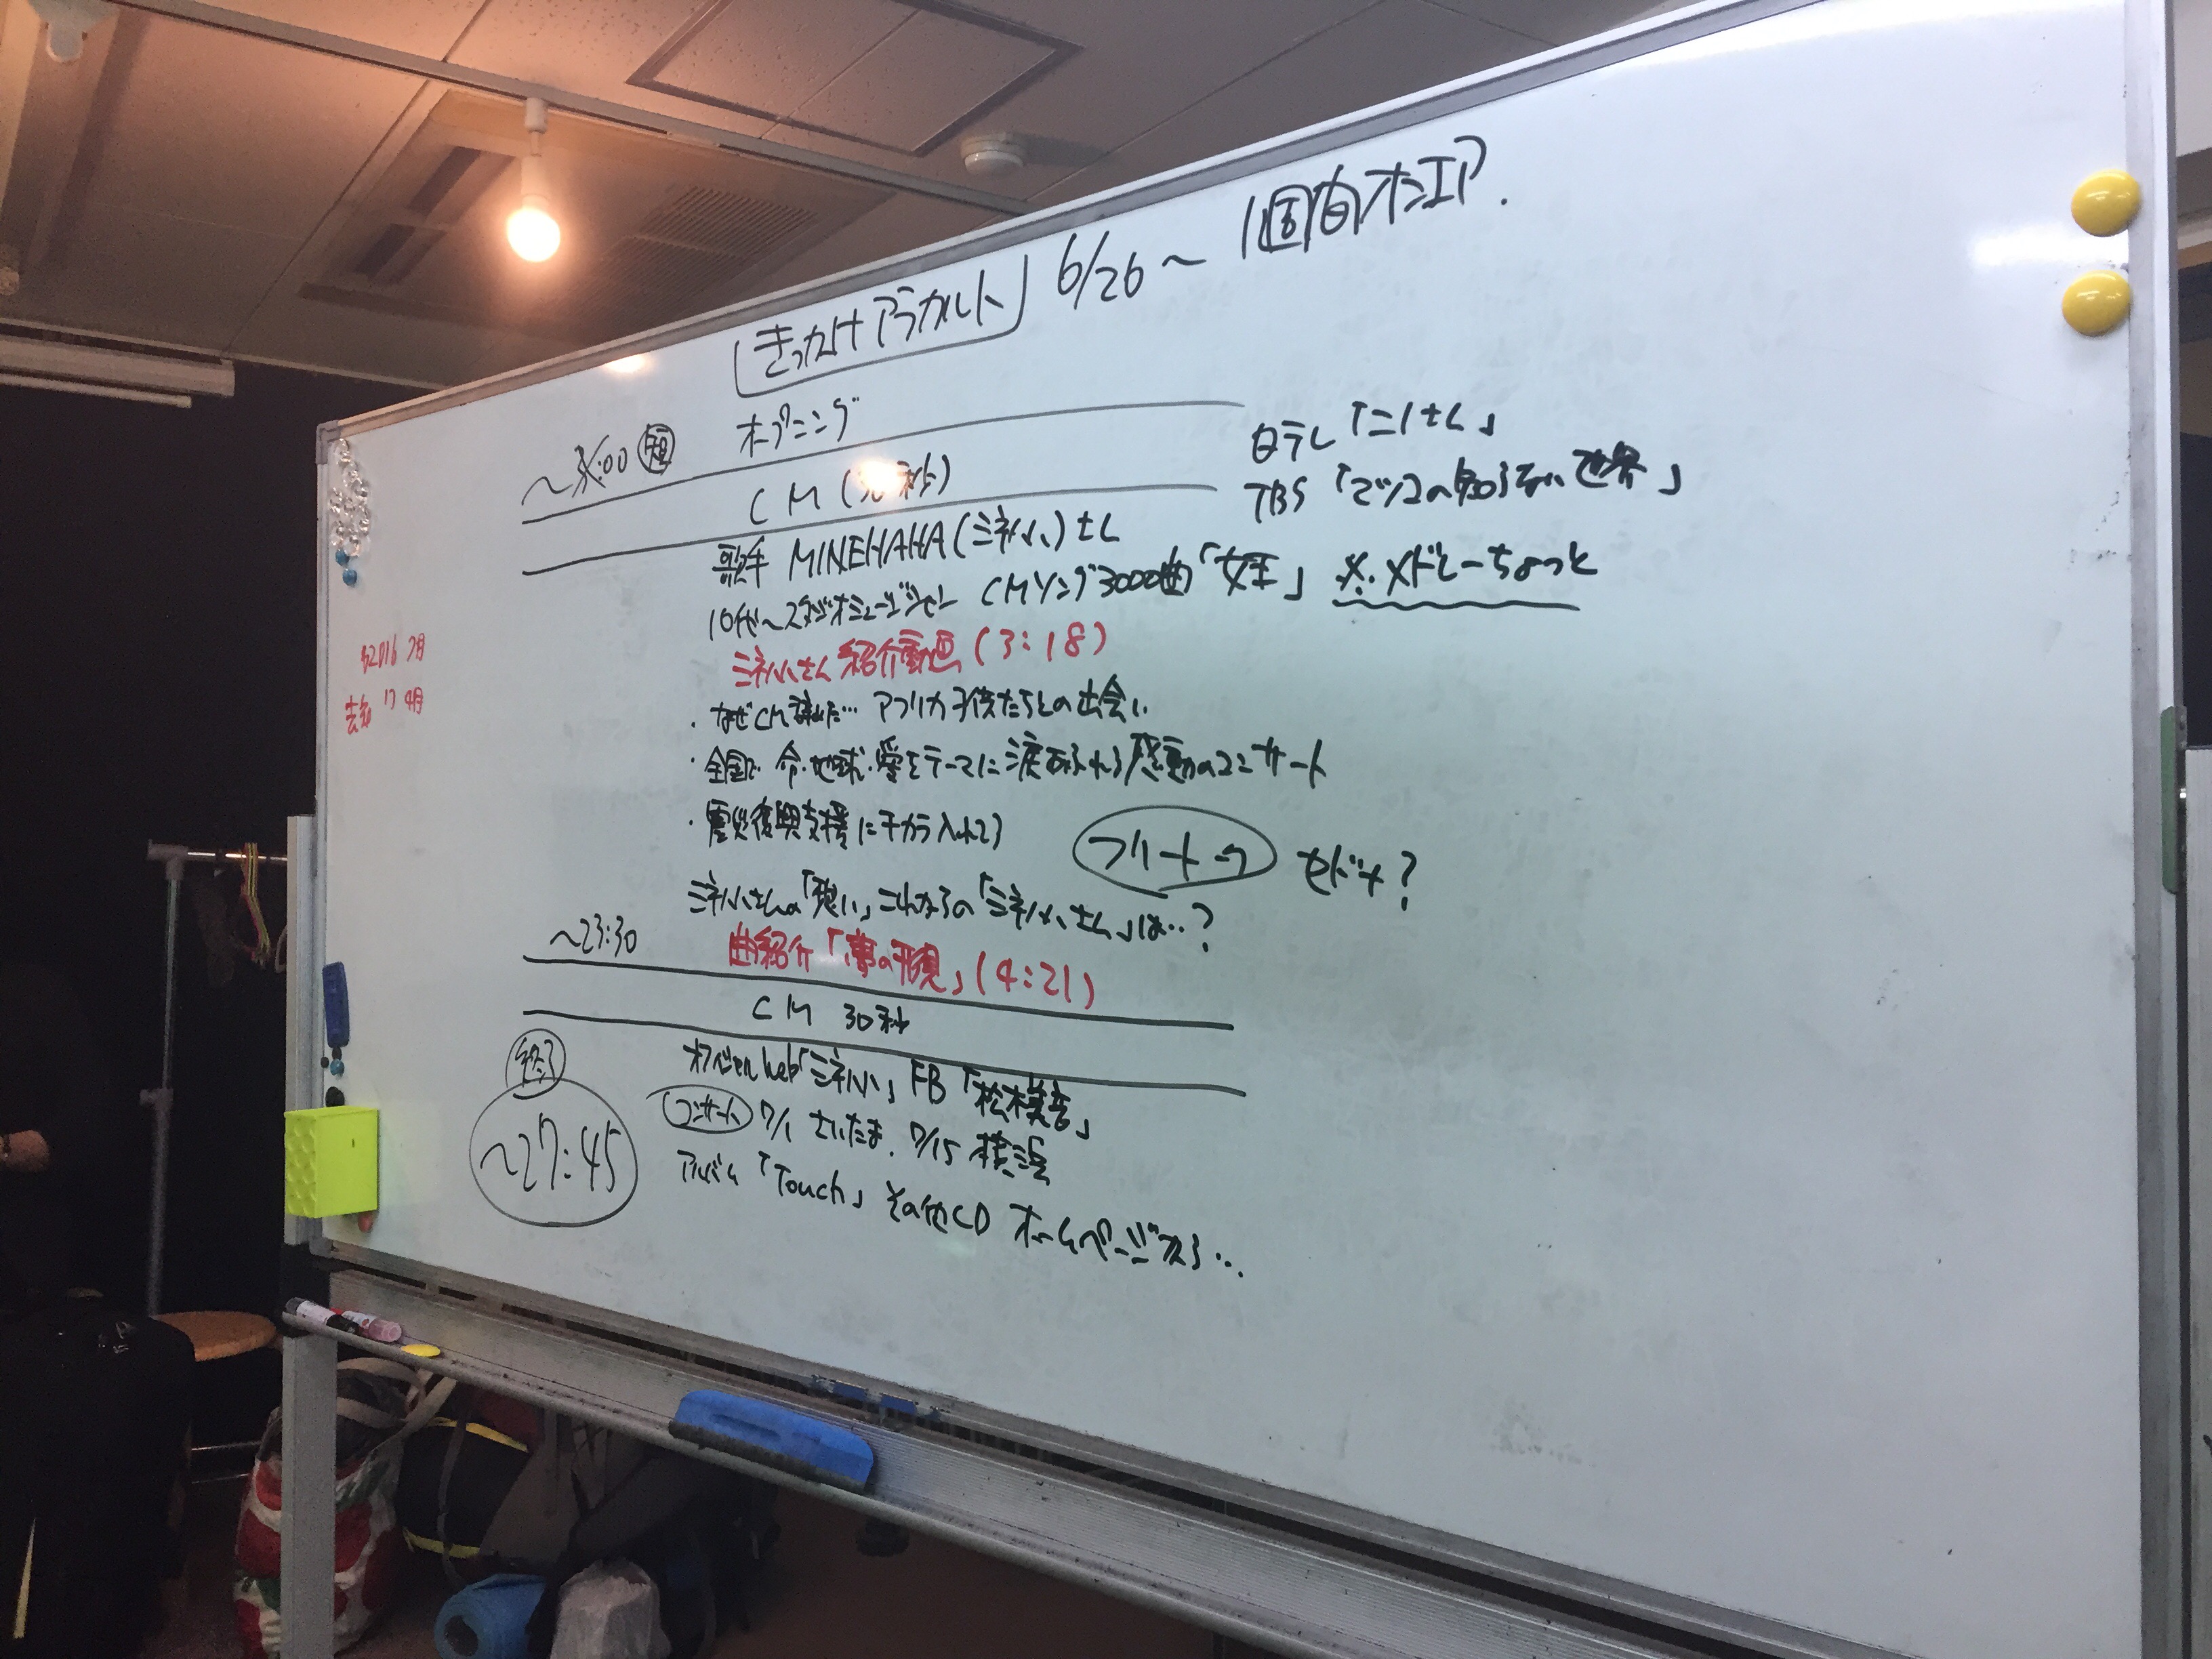 「きっかけアラカルト」 6/26～ 1週間オンエア.
～3:00 短 オープニング
CM (30秒)
日テレ「ニノさん」
TBS「マツコの知らない世界」
歌手 MINEHAHA(ミネハハ)さん
10代～スタジオミュージシャン CMソング3000曲「女王」 ※.メドレーちょっと
ミネハハさん 紹介動画 (3:18)
2016 7月
去年 17 4月
・なぜCM辞めた… アフリカ子供たちとの出会い
・全国で 命・地球・愛をテーマに 涙あふれる感動のコンサート
・震災復興支援にチカラ入れてる
フリートーク セドナ?
ミネハハさんの「想い」これからの「ミネハハさん」は‥?
～23:30 曲紹介「夢の形見」(4:21)
CM 30秒
終了
～27:45
オフィシャルweb「ミネハハ」 FB「松木美音」
コンサート 7/1 さいたま. 7/15 横浜
アルバム「Touch」 その他CD ホームページから‥.